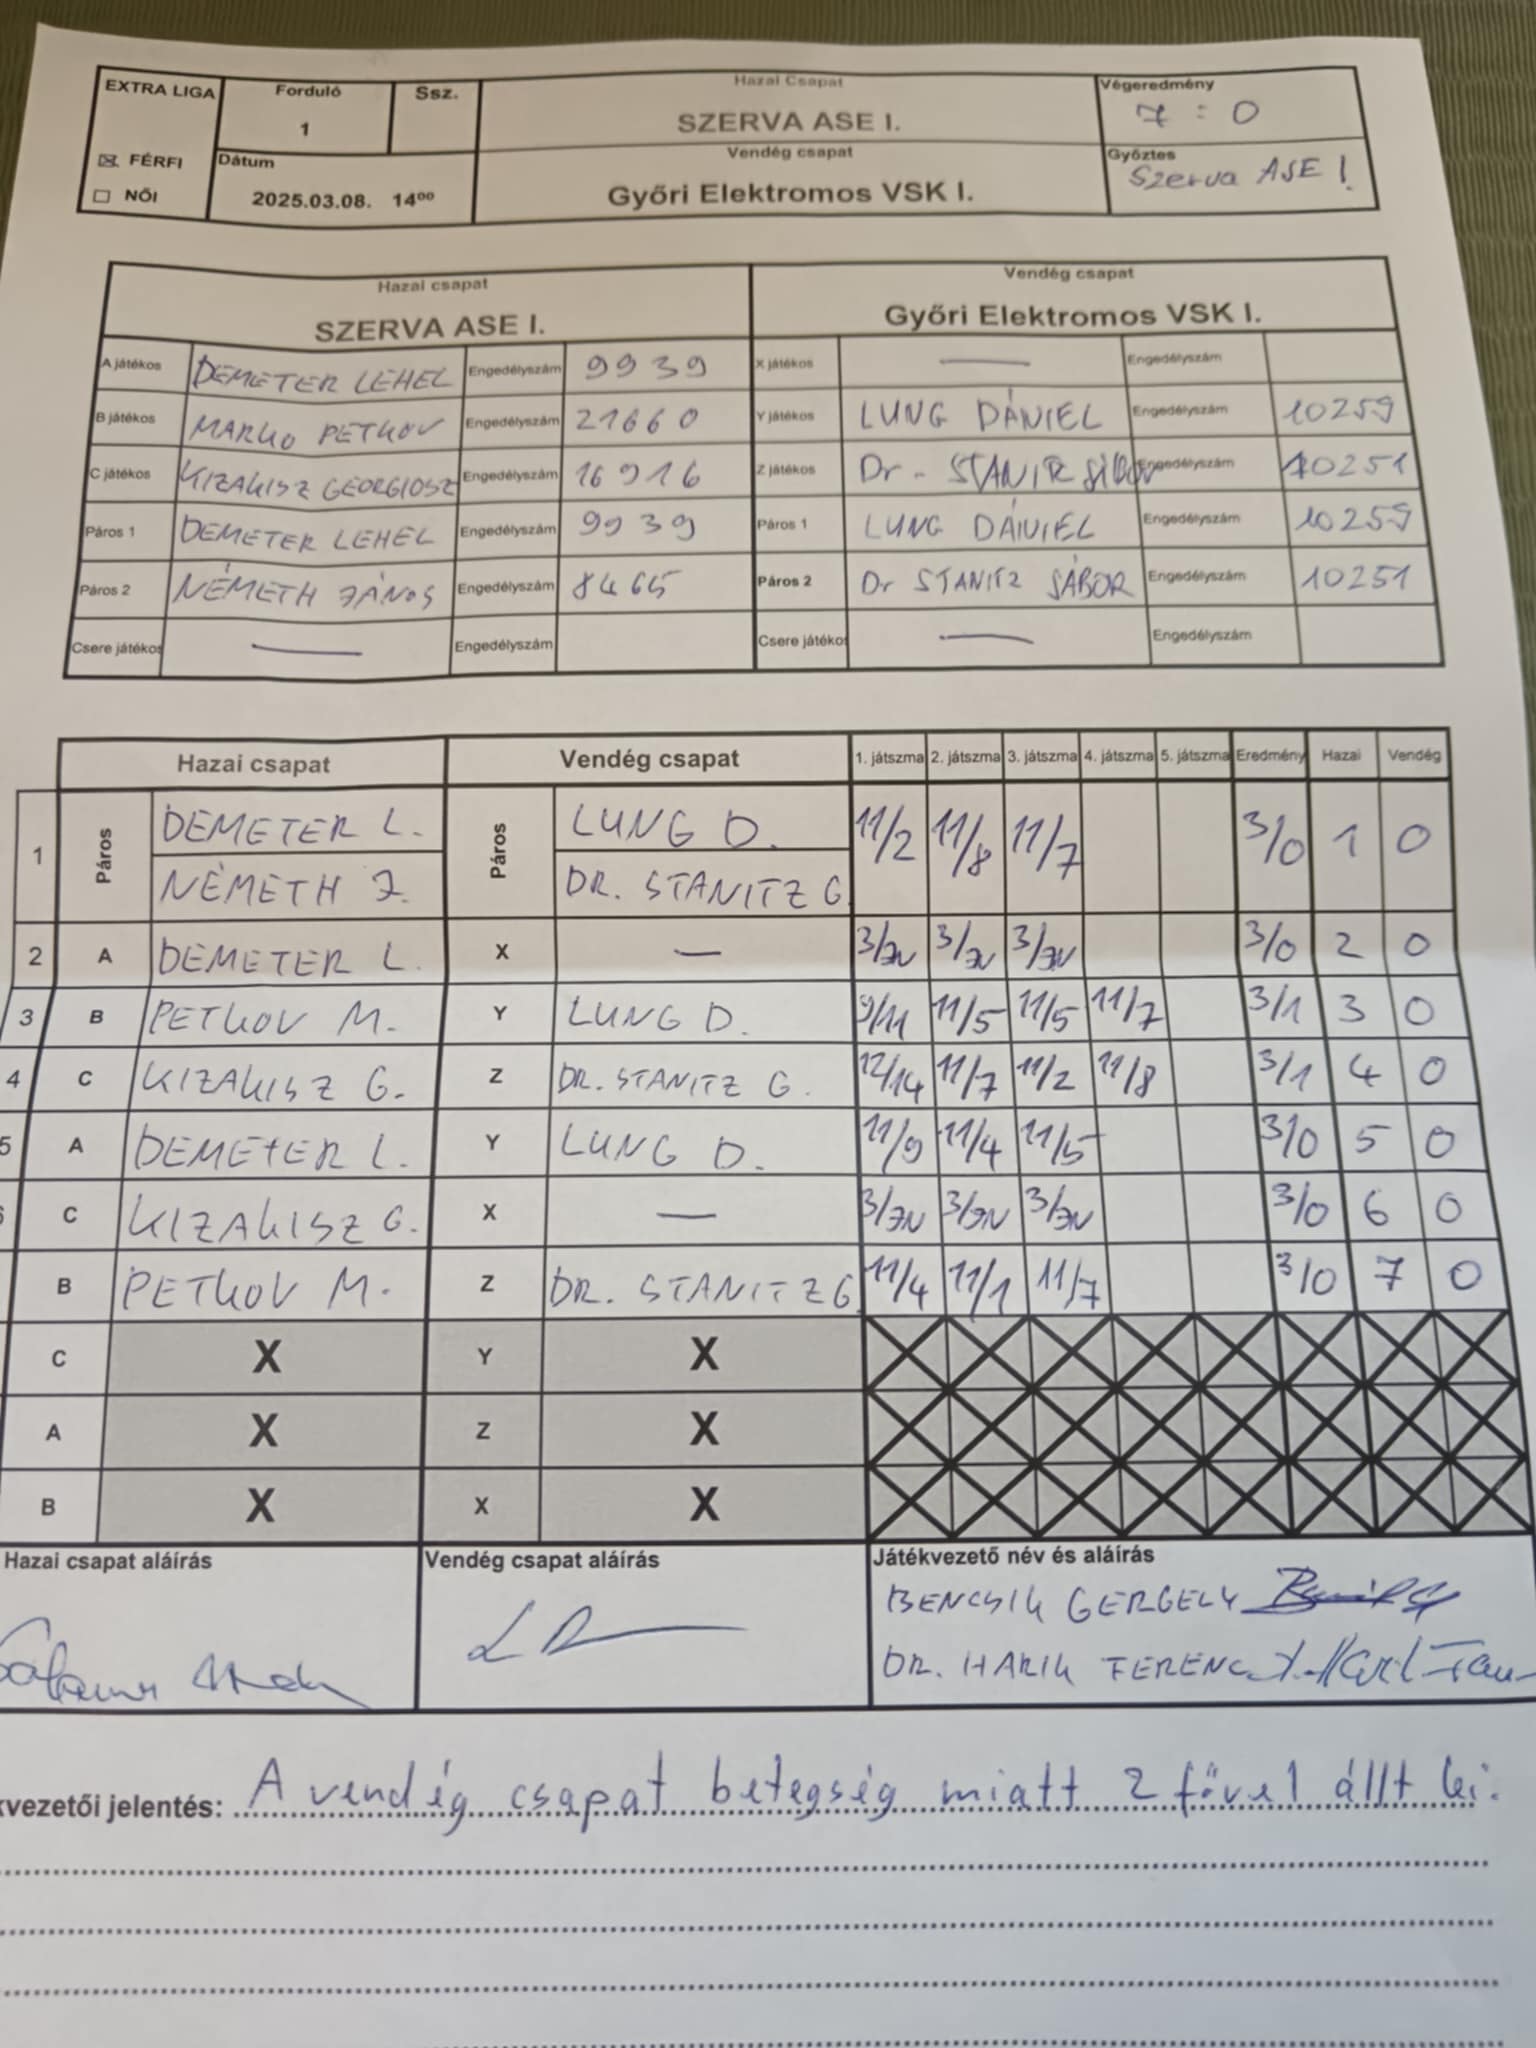 EXTRA LIGA Forduló Ssz. Hazai Csapat Végeredmény
1 SZERVA ASE I. 7 : 0
☒ FÉRFI Dátum Vendég csapat Győztes
☐ NŐI 2025.03.08. 14⁰⁰ Győri Elektromos VSK I. Szerva ASE I.
Hazai csapat Vendég csapat
SZERVA ASE I. Győri Elektromos VSK I.
A játékos DEMETER LEHEL Engedélyszám 9939 X játékos — Engedélyszám
B játékos MARKO PETKOV Engedélyszám 21660 Y játékos LUNG DÁNIEL Engedélyszám 10259
C játékos KIZAKISZ GEORGIOSZ Engedélyszám 16916 Z játékos Dr - Engedélyszám 10251
Páros 1 DEMETER LEHEL Engedélyszám 9939 Páros 1 LUNG DÁNIEL Engedélyszám 10259
Páros 2 NÉMETH JÁNOS Engedélyszám 8465 Páros 2 Dr STANITZ SÁBOR Engedélyszám 10251
Csere játékos — Engedélyszám Csere játékos — Engedélyszám
Hazai csapat Vendég csapat 1. játszma 2. játszma 3. játszma 4. játszma 5. játszma Eredmény Hazai Vendég
1 Páros DEMETER L. Páros LUNG D. 11/2 11/8 11/7 3/0 1 0
NÉMETH J. DR. STANITZ G.
2 A DEMETER L. X — 3/JN 3/JN 3/JN 3/0 2 0
3 B PETKOV M. Y LUNG D. 9/11 11/5 11/5 11/7 3/1 3 0
4 C KIZAKISZ G. Z DR. STANITZ G. 12/14 11/7 11/2 11/8 3/1 4 0
5 A DEMETER L. Y LUNG D. 11/9 11/4 11/5 3/0 5 0
6 C KIZAKISZ G. X — 3/JN 3/JN 3/JN 3/0 6 0
B PETKOV M. Z DR. STANITZ G. 11/4 11/1 11/7 3/0 7 0
C X Y X
A X Z X
B X X X
Hazai csapat aláírás Vendég csapat aláírás Játékvezető név és aláírás
BENCSIK GERGELY
DR. HARIK FERENC
kvezetői jelentés: A vendég csapat betegség miatt 2 fővel állt ki.